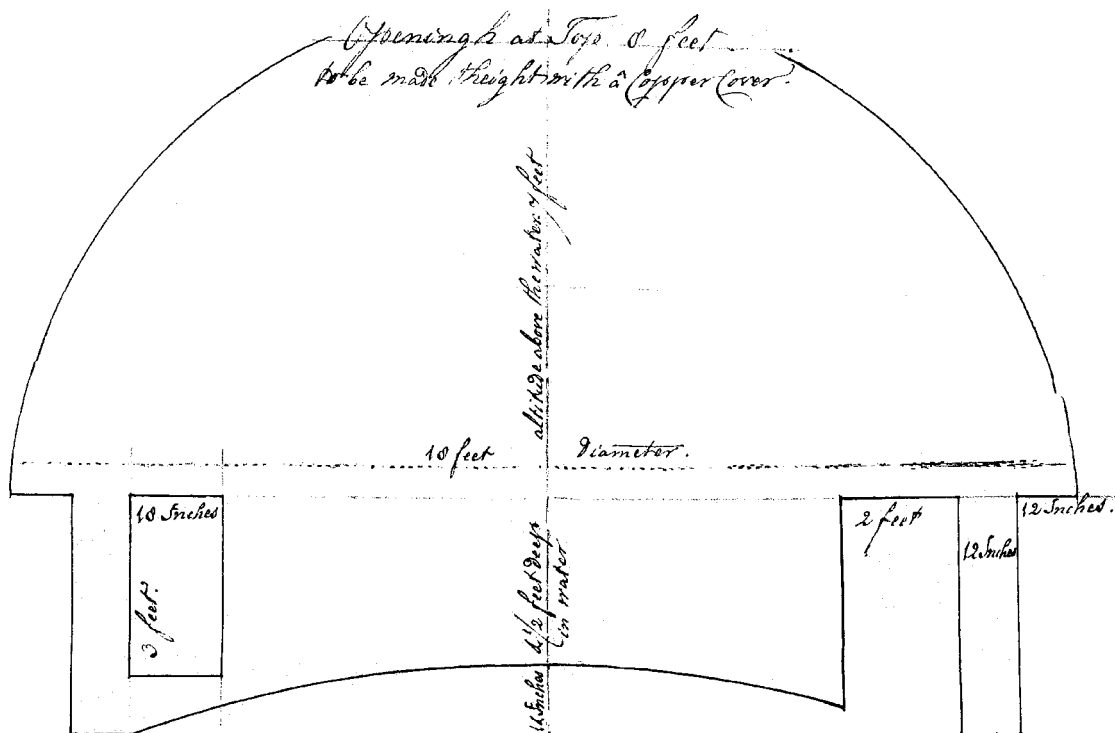 Openingh at Top 8 feet
to be made theight with â Copper Cover.
altitude above the water 7 feet
18 feet diameter.
18 Inches
3 feet.
2 1/2 feet deep
in water
Inches
2 feet
12 Inches
12 Inches.